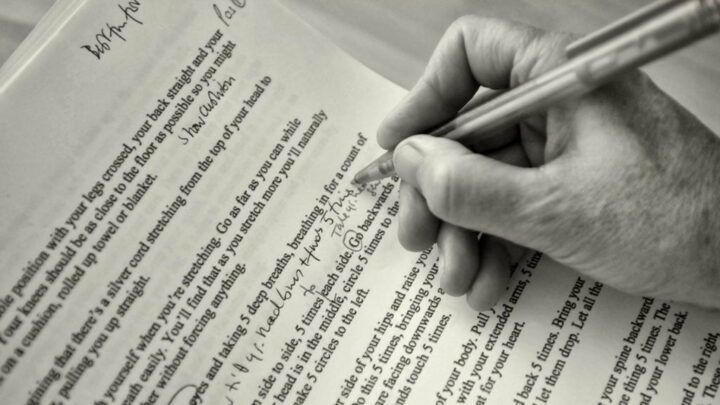 ble position with your legs crossed, your back straight and your
f your knees should be as close to the floor as possible so you might
on a cushion, rolled up towel or blanket.
Show cushion
gining that there's a silver cord stretching from the top of your head to
pulling you up straight.
yourself when you're stretching. Go as far as you can while
ath easily. You'll find that as you stretch more you'll naturally
er without forcing anything.
eyes and taking 5 deep breaths, breathing in for a count of
5 times
side to side, 5 times each side. Go backwards a
head is in the middle, circle 5 times to the
ake 5 circles to the left.
r side of your hips and raise you
this 5 times, bringing your
re facing downwards a
nds touch 5 times.
of your body. Pull
with your extended arms, 5 tim
t for your heart.
d back 5 times. Bring your
let them drop. Let all the
your spine backward
me thing 5 times. The
nd your lower back.
nd to the right,